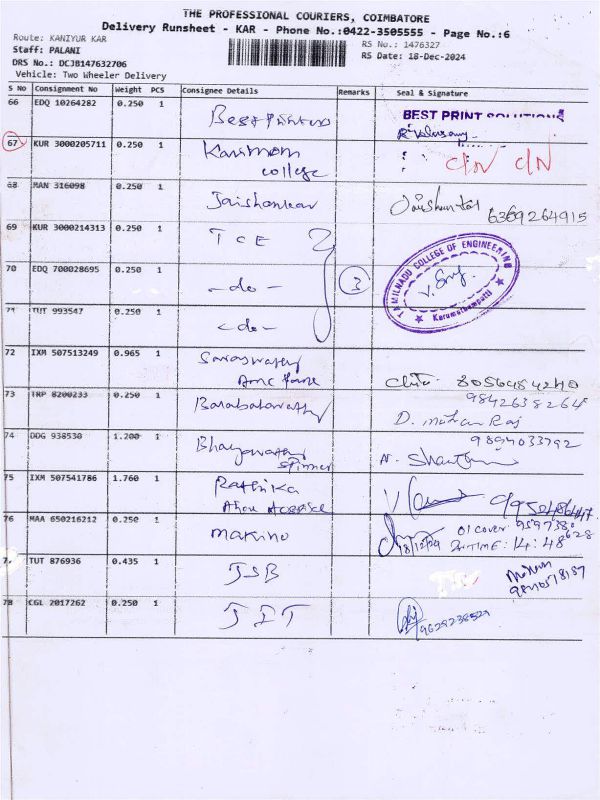 THE PROFESSIONAL COURIERS, COIMBATORE
Delivery Runsheet - KAR - Phone No.:0422-3505555 - Page No.:6
Route: KANIYUR KAR
RS No.: 1476327
Staff: PALANI
RS Date: 18-Dec-2024
DRS No.: DCJB147632706
Vehicle: Two Wheeler Delivery
S No Consignment No Weight PCS Consignee Details Remarks Seal & Signature
66 EDQ 10264282 0.250 1 Best Printers BEST PRINT SOLUTIONS
67 KUR 3000205711 0.250 1 college C/N C/N
68 MAN 316098 0.250 1 Jaishankar Jaishankar 6369264915
69 KUR 3000214313 0.250 1 TCE
70 EDQ 700028695 0.250 1 -do- 3 TAMILNADU COLLEGE OF ENGINEERING Karumathampatti
71 TUT 993547 0.250 1 -do-
72 IXM 507513249 0.965 1 Saraswathy
73 TRP 8200233 0.250 1 9842638264
D. Mohan Raj
74 DDG 938530 1.200 1 Bhagavathy Spinner 9894033792
75 IXM 507541786 1.760 1 Rathika
76 MAA 650216212 0.250 1 Makino 01 cover
18/12/24 IN TIME: 14:48
TUT 876936 0.435 1 JSB
78 CGL 2017262 0.250 1 JIT 9629238529